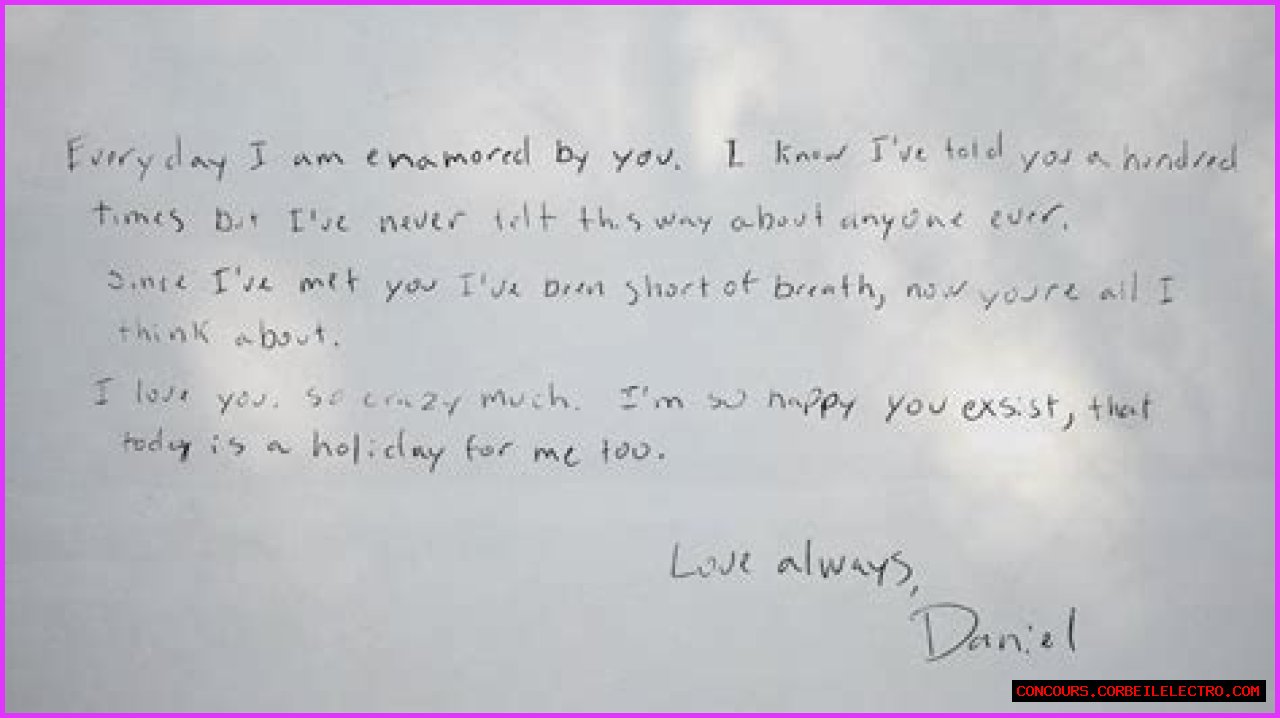 Everyday I am enamored by you. I know I've told you a hundred
times but I've never felt this way about anyone ever.
Since I've met you I've been short of breath, now youre all I
think about.
I love you. so crazy much. I'm so happy you exsist, that
today is a holiday for me too.
Love always,
Daniel
CONCOURS.CORBEILELECTRO.COM